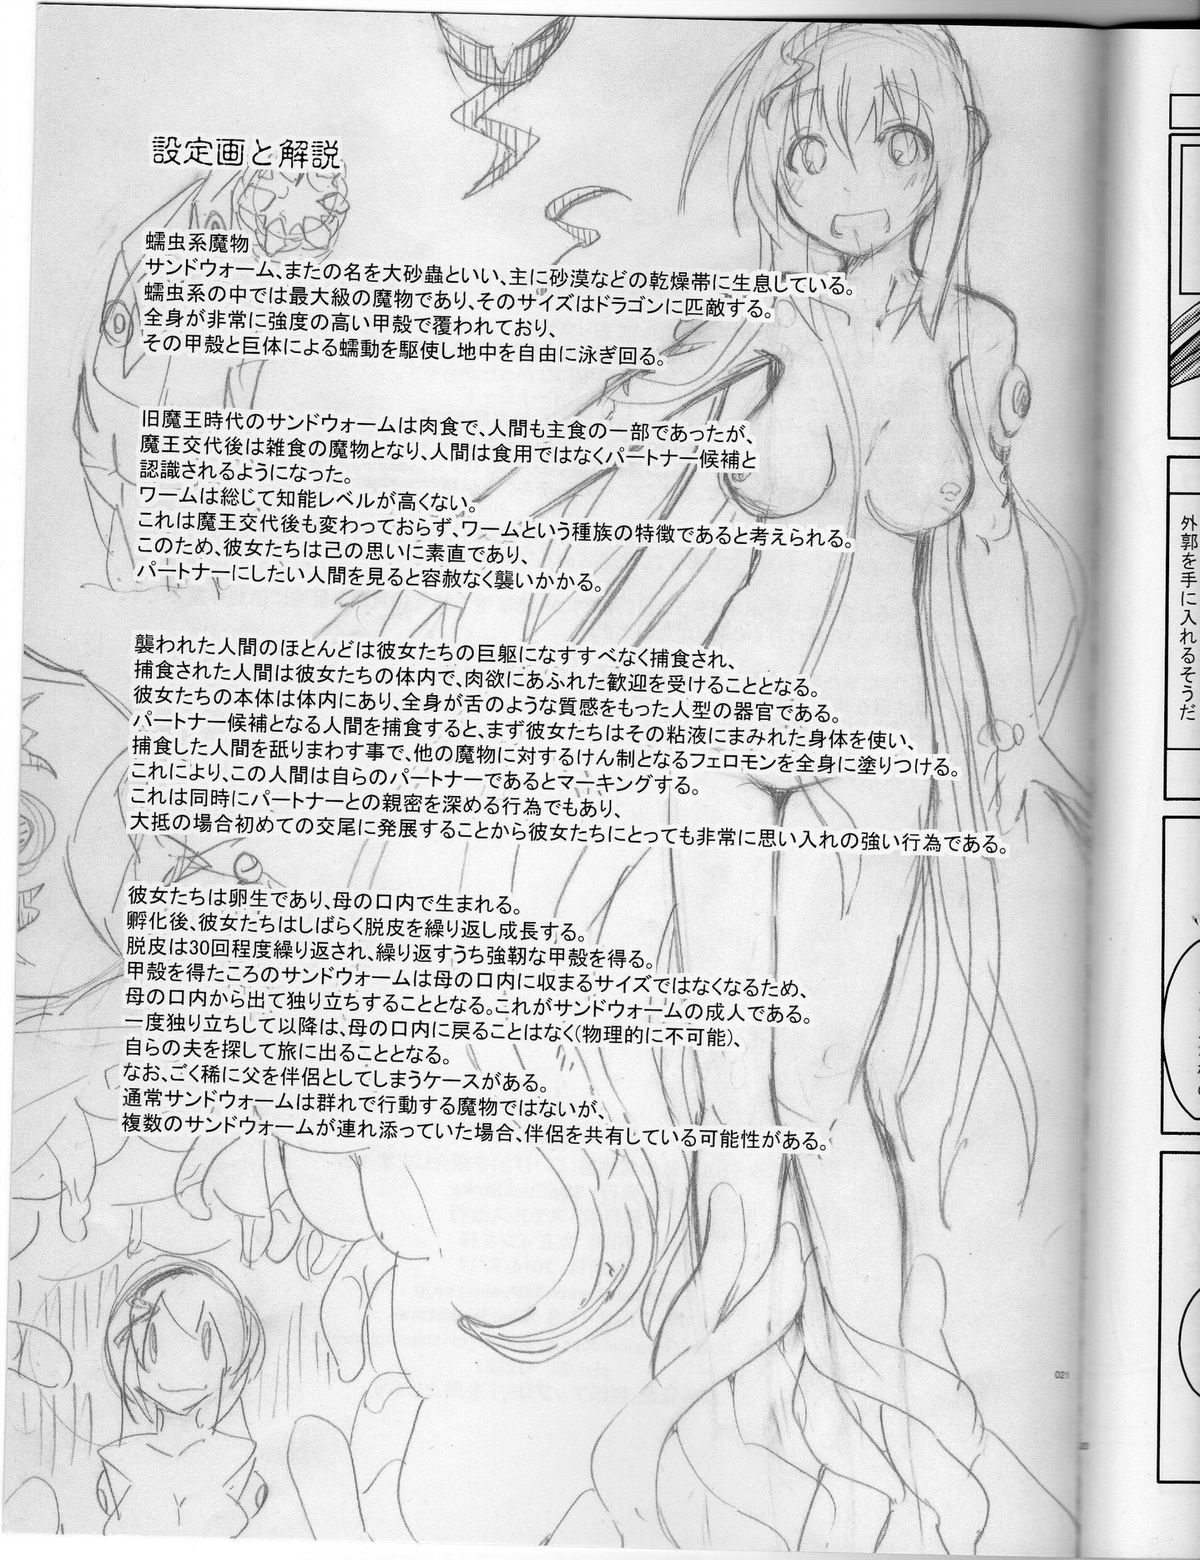 設定画と解説
蠕虫系魔物
サンドウォーム、またの名を大砂蟲といい、主に砂漠などの乾燥帯に生息している。
蠕虫系の中では最大級の魔物であり、そのサイズはドラゴンに匹敵する。
全身が非常に強度の高い甲殻で覆われており、
その甲殻と巨体による蠕動を駆使し地中を自由に泳ぎ回る。
旧魔王時代のサンドウォームは肉食で、人間も主食の一部であったが、
魔王交代後は雑食の魔物となり、人間は食用ではなくパートナー候補と
認識されるようになった。
ワームは総じて知能レベルが高くない。
これは魔王交代後も変わっておらず、ワームという種族の特徴であると考えられる。
このため、彼女たちは己の思いに素直であり、
パートナーにしたい人間を見ると容赦なく襲いかかる。
襲われた人間のほとんどは彼女たちの巨躯になすすべなく捕食され、
捕食された人間は彼女たちの体内で、肉欲にあふれた歓迎を受けることとなる。
彼女たちの本体は体内にあり、全身が舌のような質感をもった人型の器官である。
パートナー候補となる人間を捕食すると、まず彼女たちはその粘液にまみれた身体を使い、
捕食した人間を舐りまわす事で、他の魔物に対するけん制となるフェロモンを全身に塗りつける。
これにより、この人間は自らのパートナーであるとマーキングする。
これは同時にパートナーとの親密を深める行為でもあり、
大抵の場合初めての交尾に発展することから彼女たちにとっても非常に思い入れの強い行為である。
彼女たちは卵生であり、母の口内で生まれる。
孵化後、彼女たちはしばらく脱皮を繰り返し成長する。
脱皮は30回程度繰り返され、繰り返すうち強靭な甲殻を得る。
甲殻を得たころのサンドウォームは母の口内に収まるサイズではなくなるため、
母の口内から出て独り立ちすることとなる。これがサンドウォームの成人である。
一度独り立ちして以降は、母の口内に戻ることはなく(物理的に不可能)、
自らの夫を探して旅に出ることとなる。
なお、ごく稀に父を伴侶としてしまうケースがある。
通常サンドウォームは群れで行動する魔物ではないが、
複数のサンドウォームが連れ添っていた場合、伴侶を共有している可能性がある。
外郭を手に入れるそうだ